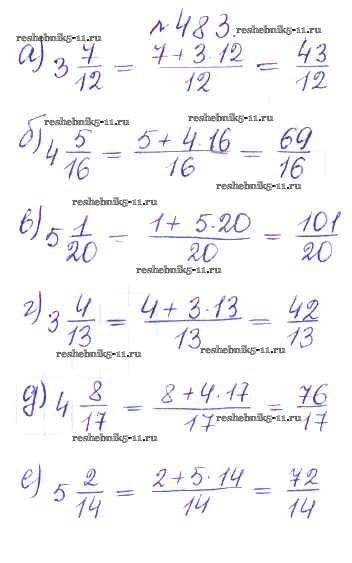 №483.
reshebnik5-11.ru
а) 3 7/12 = (7+3·12)/12 = 43/12
reshebnik5-11.ru
reshebnik5-11.ru
reshebnik5-11.ru
б) 4 5/16 = (5+4·16)/16 = 69/16
reshebnik5-11.ru
reshebnik5-11.ru
в) 5 1/20 = (1+5·20)/20 = 101/20
reshebnik5-11.ru
г) 3 4/13 = (4+3·13)/13 = 42/13
reshebnik5-11.ru
reshebnik5-11.ru
д) 4 8/17 = (8+4·17)/17 = 76/17
reshebnik5-11.ru
reshebnik5-11.ru
е) 5 2/14 = (2+5·14)/14 = 72/14